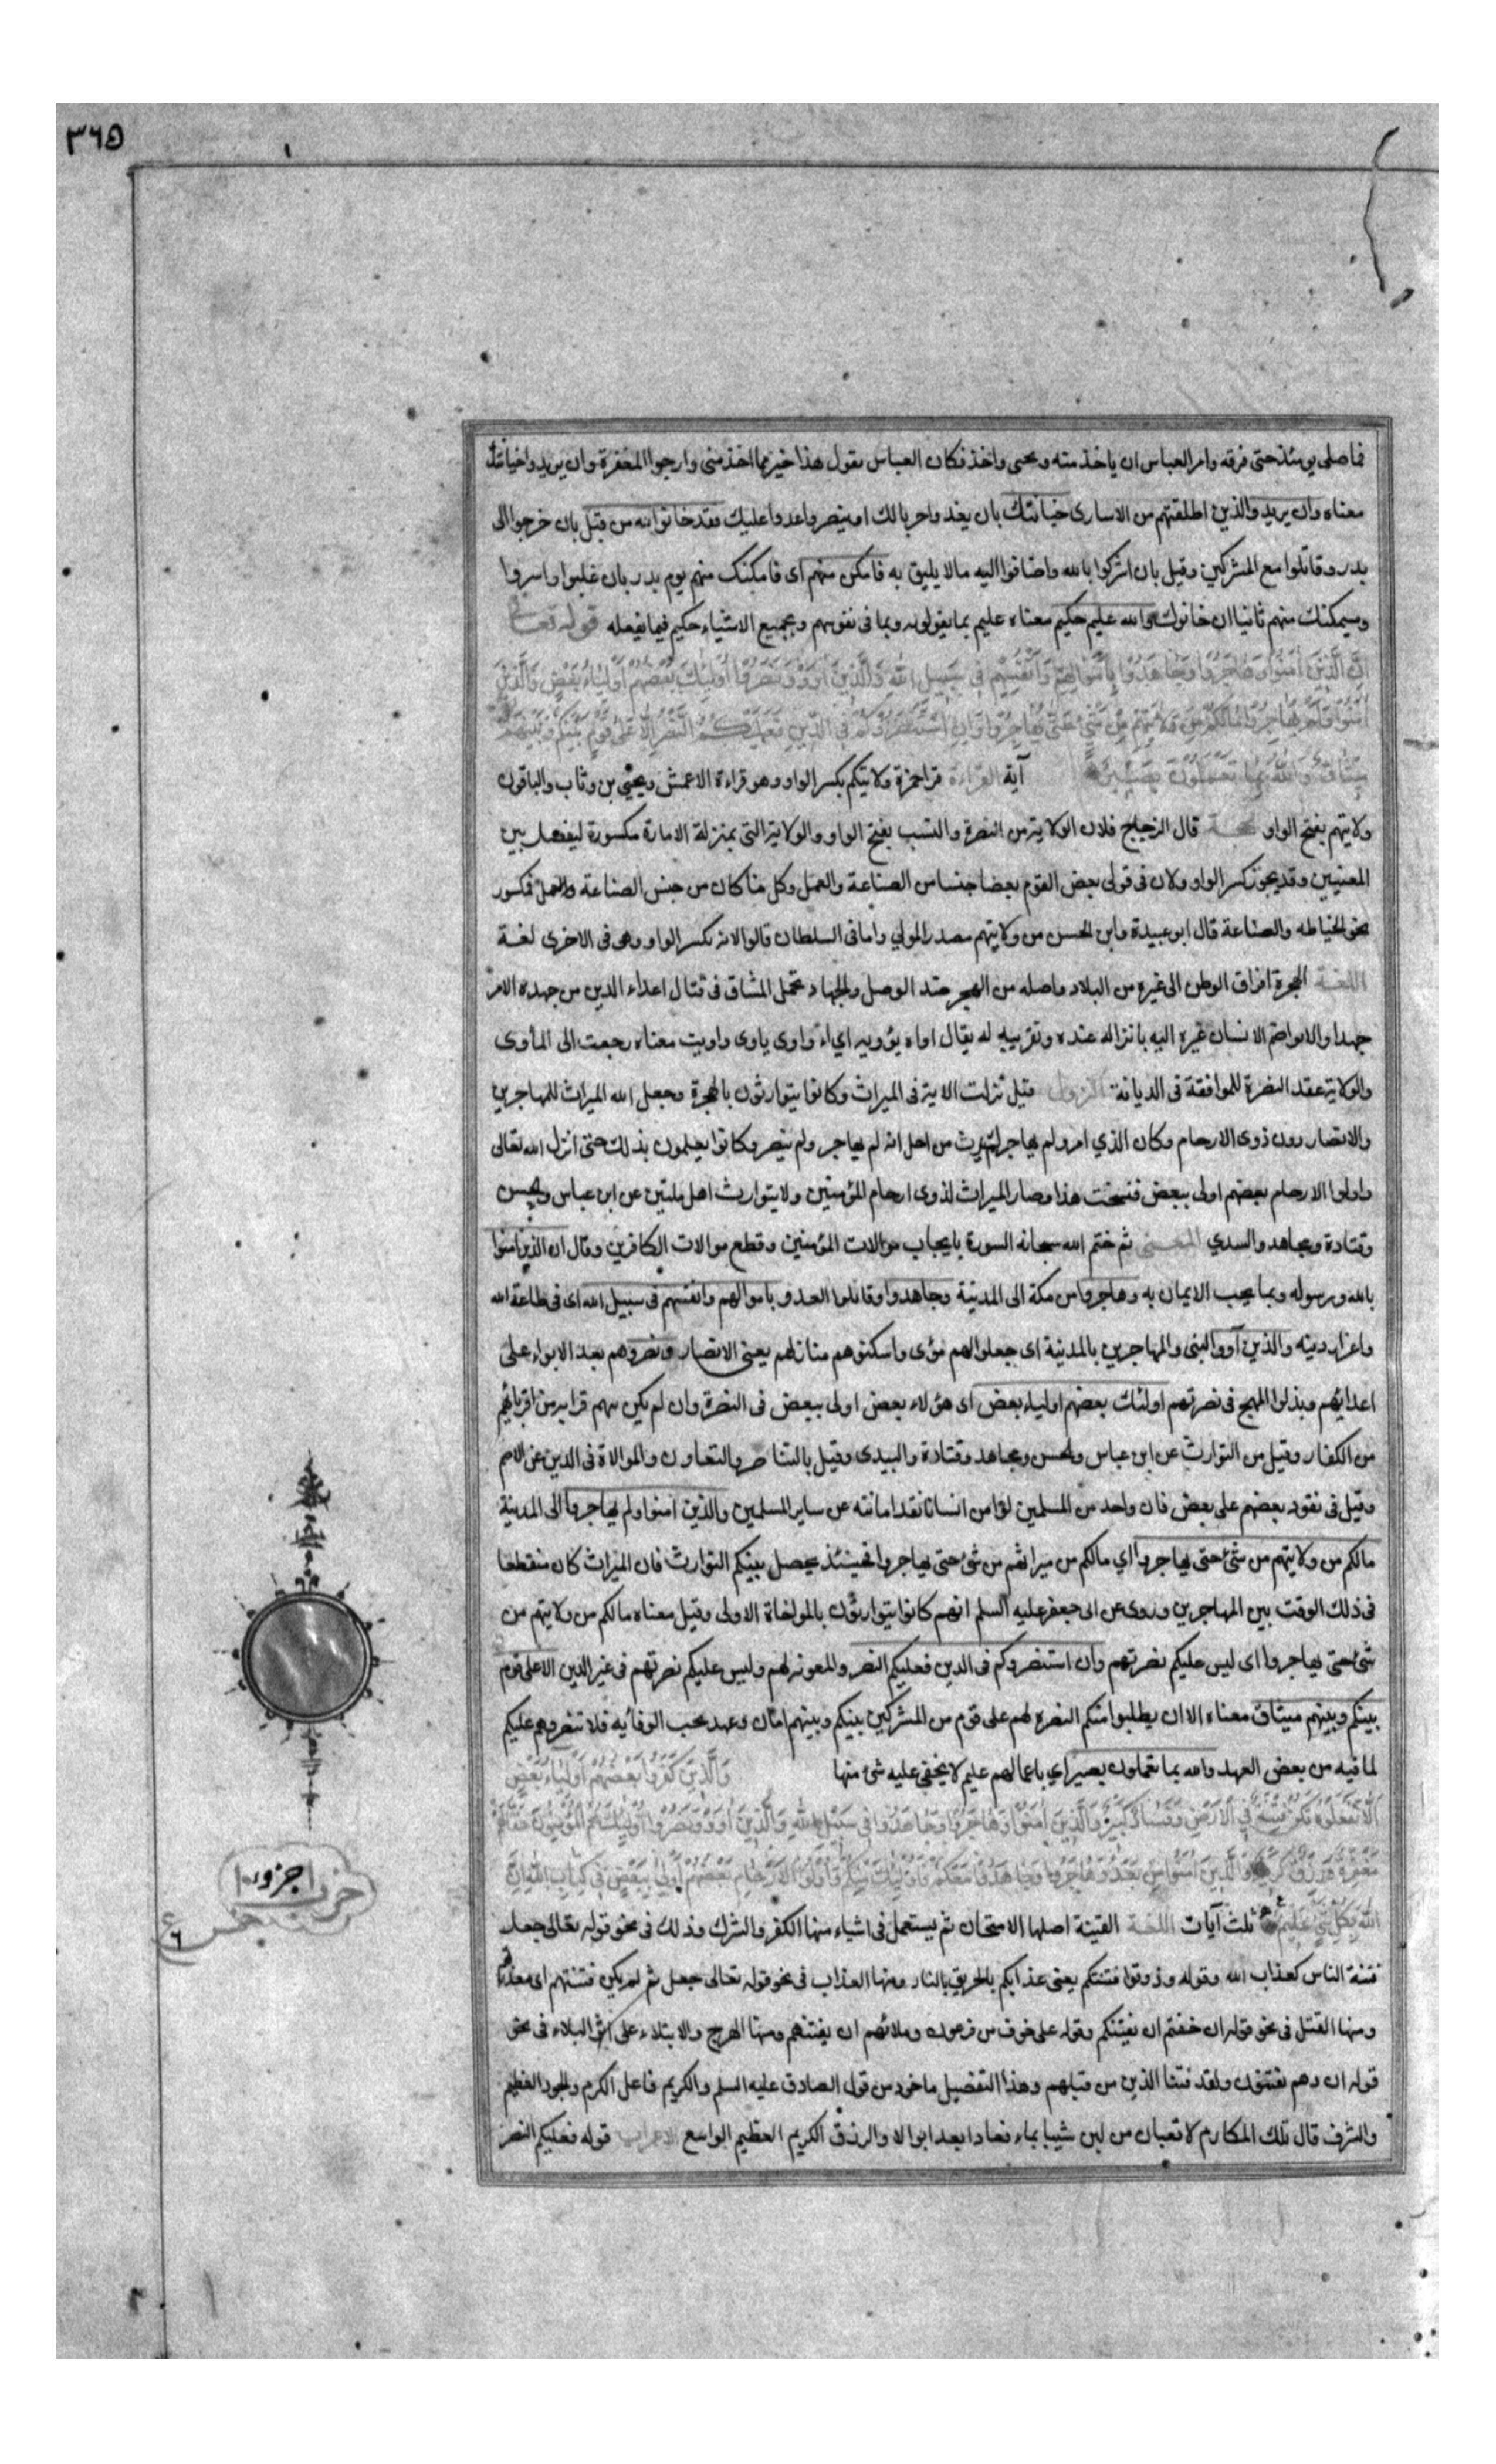 ٣٦٥
فما صلى يومئذ حتى فرقه وامر العباس ان ياخذ منه ويحثى واخذ فكان العباس يقول هذا خير مما اخذ منى وارجوا المغفرة وان يريدوا خيانتك
معناه وان يريدوا الذين اطلقتهم من الاسارى خيانتك بان يعدوا حربا لك او ينصروا عدوا عليك فقد خانوا الله من قبل بان خرجوا الى
بدر وقاتلوا مع المشركين وقيل بان اشركوا بالله واضافوا اليه مالا يليق به فامكن منهم اى فامكنك منهم يوم بدر بان غلبوا واسروا
وسيمكنك منهم ثانيا ان خانوك والله عليم حكيم معناه عليم بما يقولونه وبما فى نفوسهم وبجميع الاشياء حكيم فيما يفعله قوله تعالى
إنَّ الَّذِينَ آمَنُوا وَهَاجَرُوا وَجَاهَدُوا بِأَمْوَالِهِمْ وَأَنْفُسِهِمْ فِي سَبِيلِ اللهِ وَالَّذِينَ آوَوْا وَنَصَرُوا أُولَئِكَ بَعْضُهُمْ أَوْلِيَاءُ بَعْضٍ وَالَّذِينَ
آمَنُوا وَلَمْ يُهَاجِرُوا مَا لَكُمْ مِنْ وَلَايَتِهِمْ مِنْ شَيْءٍ حَتَّى يُهَاجِرُوا وَإِنِ اسْتَنْصَرُوكُمْ فِي الدِّينِ فَعَلَيْكُمُ النَّصْرُ إِلَّا عَلَى قَوْمٍ بَيْنَكُمْ وَبَيْنَهُمْ
مِيثَاقٌ وَاللهُ بِمَا تَعْمَلُونَ بَصِيرٌ آية القراءة قرا حمزة ولايتكم بكسر الواو وهو قراءة الاعمش ويحيى بن وثاب والباقون
ولايتهم بفتح الواو الحجة قال الزجاج فلان الولاية من النصرة والنسب بفتح الواو والولاية التى بمنزلة الامارة مكسورة ليفصل بين
المعنيين وقد يجوز كسر الواو ولان فى تولى بعض القوم بعضا جنسا من الصناعة والعمل وكل ما كان من جنس الصناعة والعمل فمكسور
نحو الخياطه والصناعة قال ابو عبيدة وابن الحسن من ولايتهم مصدر المولي واما فى السلطان قالوا الانه بكسر الواو وهى فى الاخرى لغة
اللغة الهجرة افراق الوطن الى غيره من البلاد واصله من الهجر ضد الوصل والجهاد تحمل المشاق فى قتال اعداء الدين من جهده الامر
جهدا والايوا ضم الانسان غيره اليه بانزاله عنده وتقريبه له يقال اواه يؤويه ايواء واوى ياوى واويت معناه رجعت الى المأوى
والولاية عقد النصرة للموافقة فى الديانة النزول قيل نزلت الاية فى الميراث وكانوا يتوارثون بالهجرة وجعل الله الميراث للمهاجرين
والانصار دون ذوى الارحام وكان الذي امن ولم يهاجر لم يرث من اجل انه لم يهاجر ولم ينصر وكانوا يعلمون بذلك حتى انزل الله تعالى
واولوا الارحام بعضهم اولى ببعض فنسخت هذا وصار الميراث لذوى ارحام المؤمنين ولا يتوارث اهل ملتين عن ابن عباس والحسن
وقتادة ومجاهد والسدي المعنى ثم ختم الله سبحانه السورة بايجاب موالات المؤمنين وقطع موالات الكافرين وقال ان الذين امنوا
بالله ورسوله وبما يجب الايمان به وهاجروا من مكة الى المدينة وجاهدوا وقاتلوا العدو باموالهم وانفسهم فى سبيل الله اى فى طاعة الله
واعزاز دينه والذين آووا النبى والمهاجرين بالمدينة اى جعلوا لهم مؤى واسكنوهم منازلهم يعنى الانصار ونصروهم بعد الايواء على
اعدايهم وبذلوا المهج فى نصرتهم اولئك بعضهم اولياء بعض اى هؤلاء بعض اولى ببعض فى النصرة وان لم يكن بينهم قرابه من اقربائهم
من الكفار وقيل من التوارث عن ابن عباس والحسن ومجاهد وقتادة والسدى وقيل بالتناصر والتعاون والموالاة فى الدين عن الاصم
وقيل فى نفوذ بعضهم على بعض فان واحد من المسلمين لو امن انسانا نفذ امانته عن ساير المسلمين والذين امنوا ولم يهاجروا الى المدينة
مالكم من ولايتهم من شئ حتى يهاجروا اي مالكم من ميراثهم من شئ حتى يهاجروا فحينئذ يحصل بينكم التوارث فان الميراث كان منقطعا
فى ذلك الوقت بين المهاجرين وروى عن ابى جعفر عليه السلم انهم كانوا يتوارثون بالمواخاة الاولى وقيل معناه مالكم من ولايتهم من
شئ حتى يهاجروا اى ليس عليكم نصرتهم وان استنصروكم فى الدين فعليكم النصر والمعونه لهم وليس عليكم نصرتهم فى غير الدين الا على قوم
بينكم وبينهم ميثاق معناه الا ان يطلبوا منكم النصره لهم على قوم من المشركين بينكم وبينهم امان وعهد يجب الوفاء به فلا تنصروهم عليكم
لما فيه من بعض العهد والله بما تعملون بصير اي باعمالهم عليم لا يخفى عليه شئ منها وَالَّذِينَ كَفَرُوا بَعْضُهُمْ أَوْلِيَاءُ بَعْضٍ
إِلَّا تَفْعَلُوهُ تَكُنْ فِتْنَةٌ فِي الْأَرْضِ وَفَسَادٌ كَبِيرٌ وَالَّذِينَ آمَنُوا وَهَاجَرُوا وَجَاهَدُوا فِي سَبِيلِ اللهِ وَالَّذِينَ آوَوْا وَنَصَرُوا أُولَئِكَ هُمُ الْمُؤْمِنُونَ حَقًّا لَهُمْ
مَغْفِرَةٌ وَرِزْقٌ كَرِيمٌ وَالَّذِينَ آمَنُوا مِنْ بَعْدُ وَهَاجَرُوا وَجَاهَدُوا مَعَكُمْ فَأُولَئِكَ مِنْكُمْ وَأُولُو الْأَرْحَامِ بَعْضُهُمْ أَوْلَى بِبَعْضٍ فِي كِتَابِ اللهِ إِنَّ
اللهَ بِكُلِّ شَيْءٍ عَلِيمٌ ثلث آيات اللغة الفتنة اصلها الامتحان ثم يستعمل فى اشياء منها الكفر والشرك وذلك فى نحو قوله تعالى جعل
فتنة الناس كعذاب الله وقوله وذوقوا فتنتكم يعنى عذابكم بالحريق بالنار ومنها العذاب فى نحو قوله تعالى جعل ثم لم يكن فتنتهم اى معذرتهم
ومنها القتل فى نحو قوله ان خفتم ان يفتنكم وقوله على خوف من فرعون وملائهم ان يفتنهم ومنها الهرج والابتلاء على اثر البلاء فى نحو
قوله ان وهم يفتنون ولقد فتنا الذين من قبلهم وهذا التفصيل ماخوذ من قول الصادق عليه السلم والكريم فاعل الكرم والجود العظيم
والشرف قال تلك المكارم لا قعبان من لبن شيبا بماء فعادا بعد ابوالا والرزق الكريم العظيم الواسع الاعراب قوله فعليكم النصر
جزو ١٠
حزب